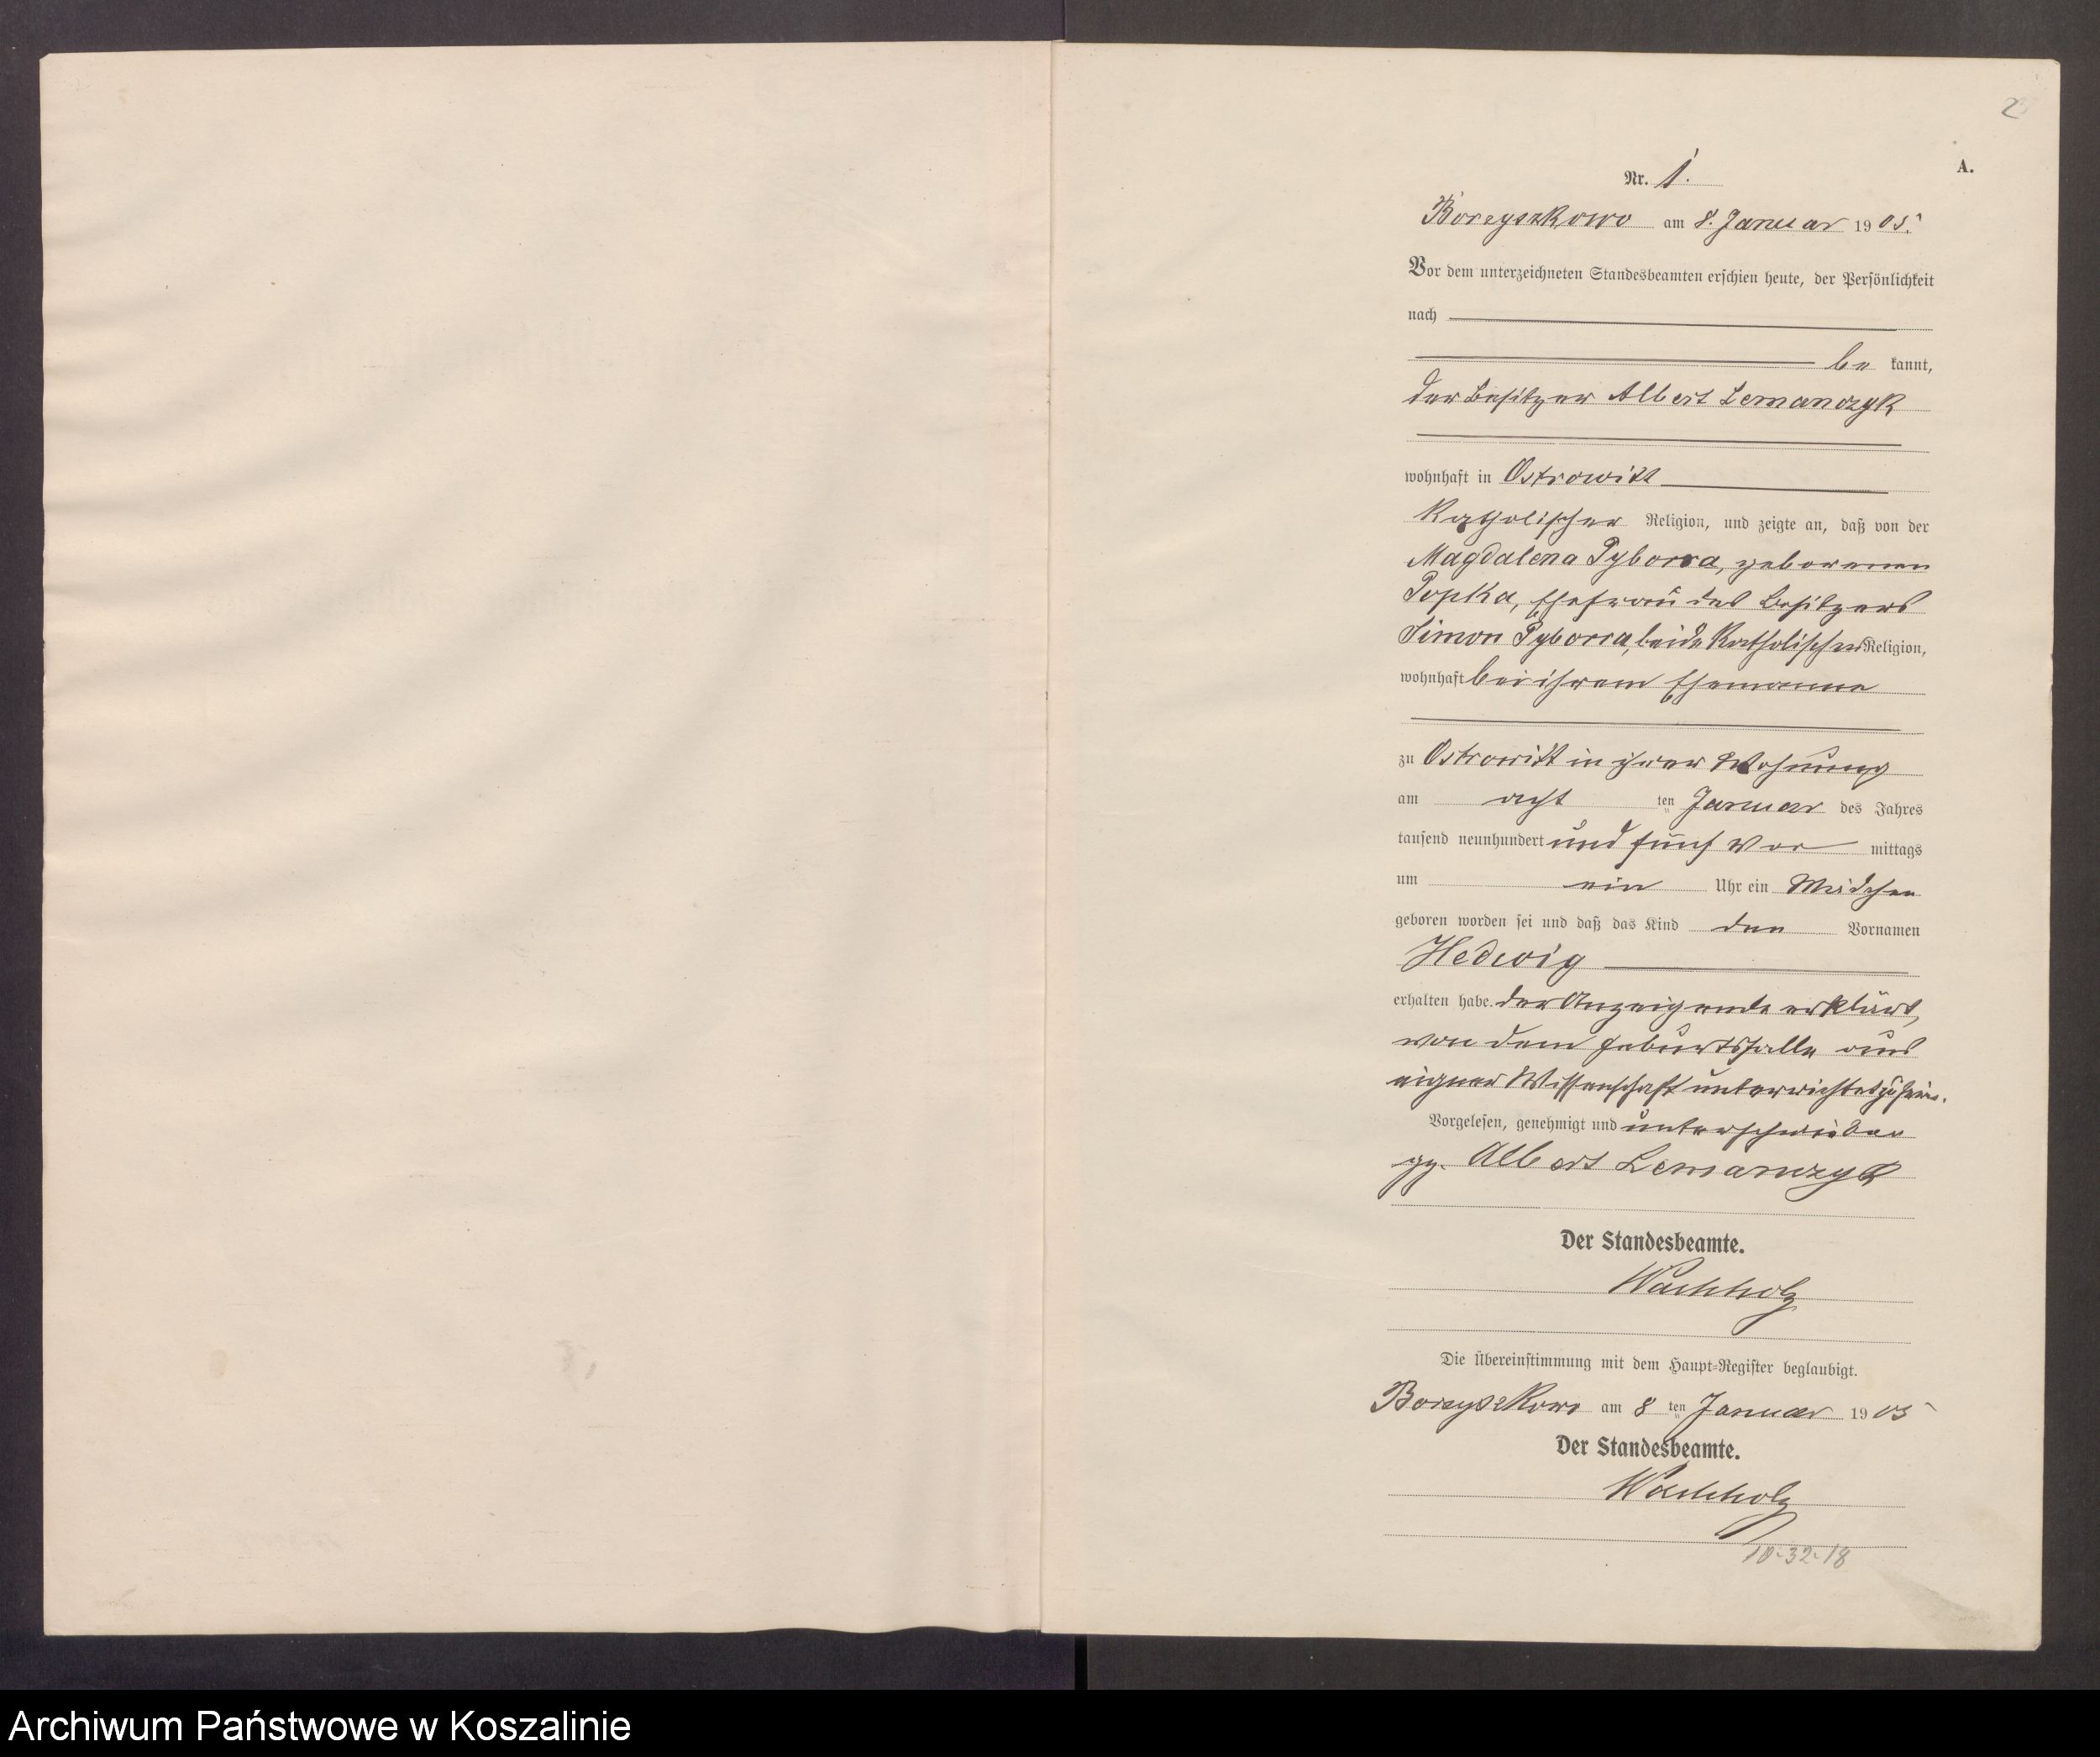 2
A.
Nr. 1.
Borzyszkowo am 8. Januar 1905.
Vor dem unterzeichneten Standesbeamten erschien heute, der Persönlichkeit
nach
be kannt,
der Besitzer Albert Lemanczyk
wohnhaft in Ostrowitt
katholischer Religion, und zeigte an, daß von der
Magdalena Pyborra, geborenen
Popka, Ehefrau des Besitzers
Simon Pyborra, beide katholischer Religion,
wohnhaft bei ihrem Ehemanne
zu Ostrowitt in ihrer Wohnung
am acht ten Januar des Jahres
tausend neunhundert und fünf Vor mittags
um ein Uhr ein Mädchen
geboren worden sei und daß das Kind den Vornamen
Hedwig
erhalten habe. Der Anzeigende erklärt,
von dem Geburtsfalle aus
eigner Wissenschaft unterrichtet zu sein.
Vorgelesen, genehmigt und unterschrieben
gz. Albert Lemanczyk
Der Standesbeamte.
Wachholz
Die Übereinstimmung mit dem Haupt-Register beglaubigt.
Borzyszkowo am 8 ten Januar 1905
Der Standesbeamte.
Wachholz
10-32-18
Archiwum Państwowe w Koszalinie